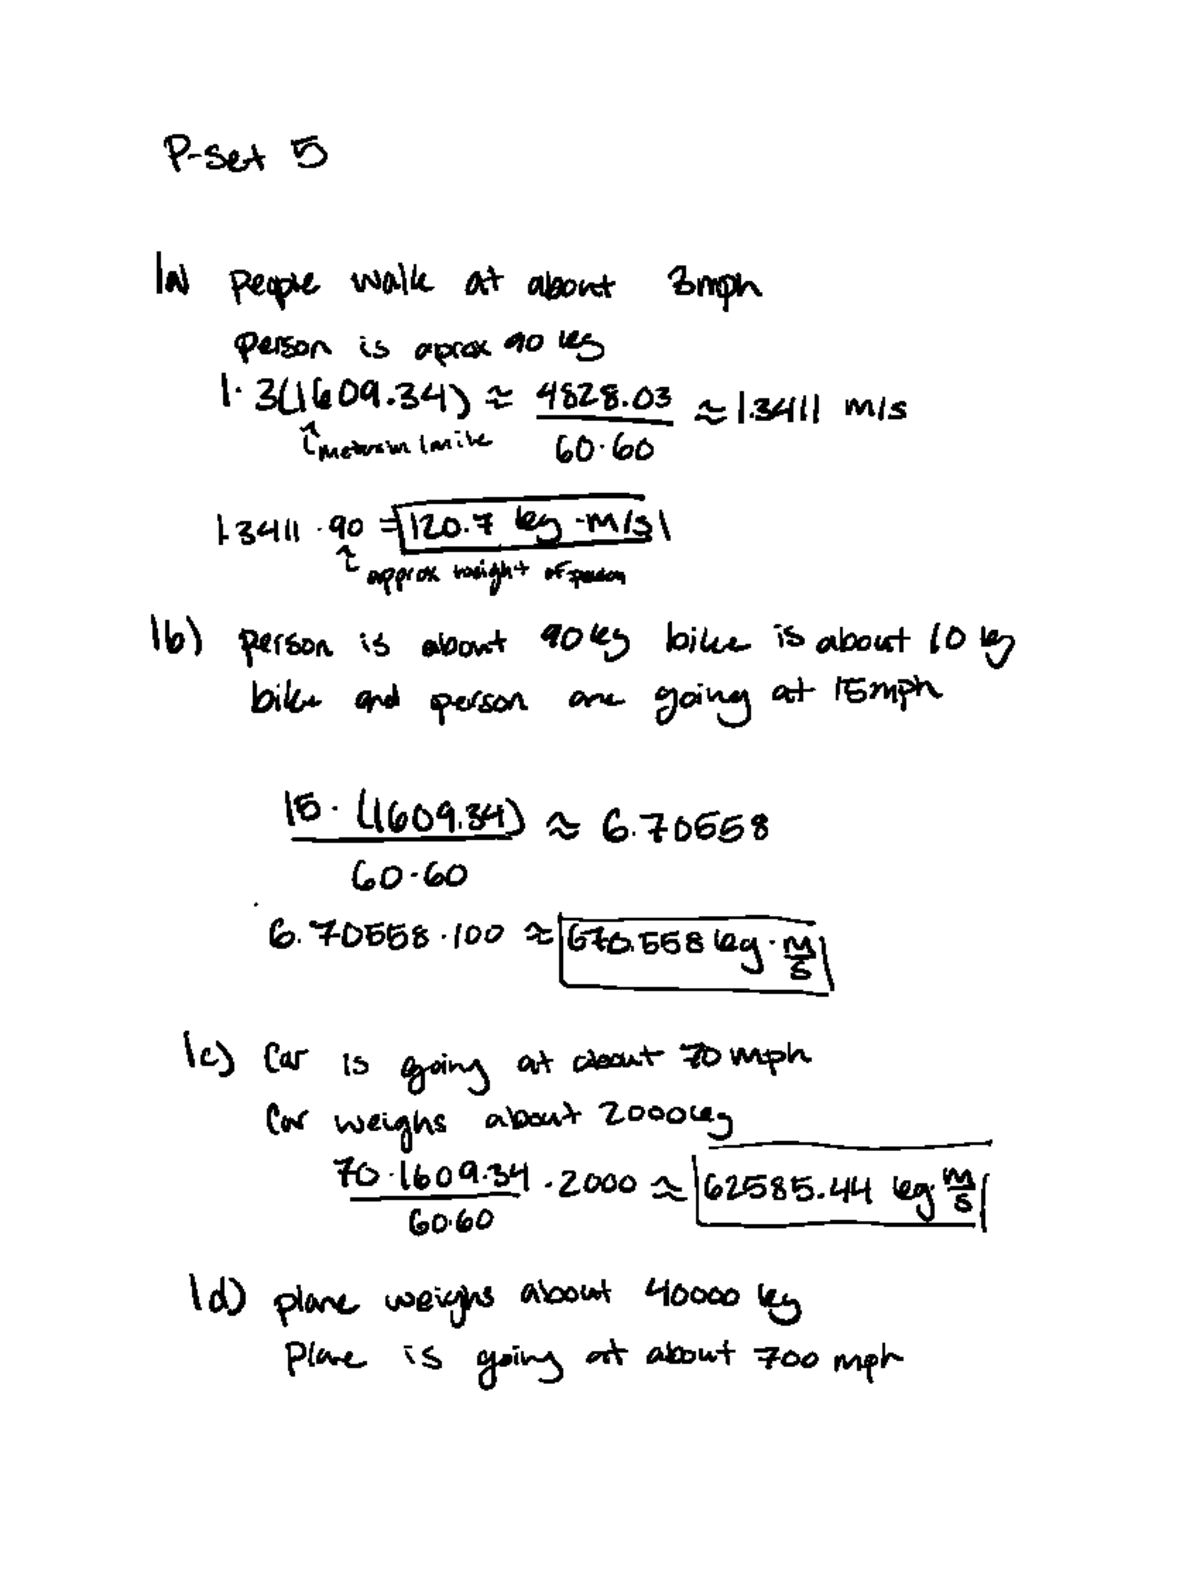 P-Set 5
1a) People walk at about 3mph
person is aprox 90 kg
1· 3(1609.34) ≈ 4828.03 / 60·60 ≈ 1.3411 m/s
↑ meters in 1 mile
1.3411 · 90 = 120.7 kg·m/s
↑ approx weight of person
1b) person is about 90kg bike is about 10 kg
bike and person are going at 15mph
15· (1609.34) / 60·60 ≈ 6.70558
6.70558·100 ≈ 670.558 kg· m/s
1c) Car is going at about 70 mph
Car weighs about 2000kg
70·1609.34 / 60·60 · 2000 ≈ 62585.44 kg· m/s
1d) plane weighs about 40000 kg
Plane is going at about 700 mph